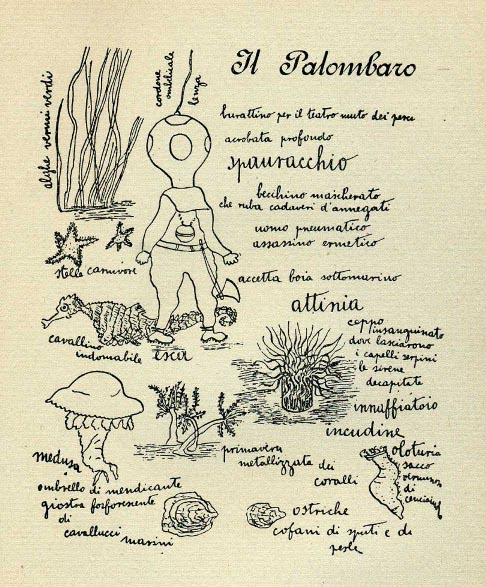 Il Palombaro
alghe vermi verdi
cordone ombelicale
lenza
burattino per il teatro muto dei pesci
acrobata profondo
spauracchio
becchino mascherato
che ruba cadaveri d'annegati
uomo pneumatico
assassino ermetico
stelle carnivore
accetta boia sottomarino
attinia
ceppo insanguinato
dove lasciarono
i capelli serpini
le sirene
decapitate
cavallino
indomabile
esca
innaffiatoio
incudine
medusa
ombrello di mendicante
giostra fosforescente
di
cavallucci
marini
primavera
metallizzata dei
coralli
oloturia
sacco
di
ostriche
cofani di sputi e di
perle